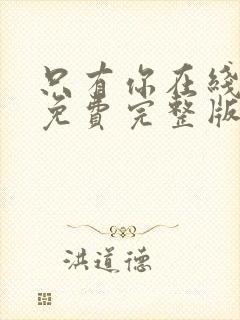 只有你在线
免费完整版
洪道德